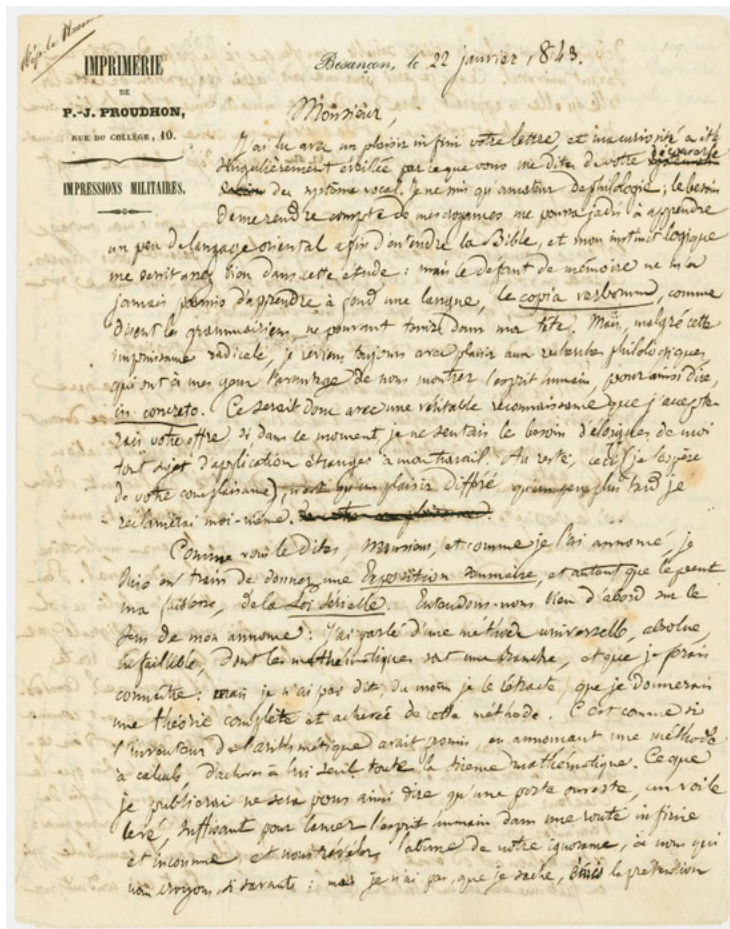 IMPRIMERIE
DE
P.-J. PROUDHON,
RUE DU COLLÉGE, 10.
IMPRESSIONS MILITAIRES.
Besançon, le 22 janvier 1843.
Monsieur,
J'ai lu avec un plaisir infini votre lettre, et ma curiosité a été
singulièrement éveillée par ce que vous me dites de votre découverte
du système vocal. Je ne suis qu'amateur de philologie ; le besoin
de me rendre compte de mes croyances me poussa jadis à apprendre
un peu de langage oriental afin d'entendre la Bible, et mon instinct logique
me servit assez bien dans cette étude : mais le défaut de mémoire ne m'a
jamais permis d'apprendre à fond une langue, le copia verborum, comme
disent les grammairiens, ne pouvant tenir dans ma tête. Mais, malgré cette
impuissance radicale, je reviens toujours avec plaisir aux recherches philologiques,
qui ont à mes yeux l'avantage de nous montrer l'esprit humain, pour ainsi dire,
in concreto. Ce serait donc avec une véritable reconnaissance que j'accepte-
rais votre offre si dans ce moment je ne sentais le besoin d'éloigner de moi
tout sujet d'application étranger à mon travail. Au reste, ceci (je l'espère
de votre complaisance), n'est qu'un plaisir différé plus tard je
réclamerai moi-même.
Comme vous le dites, Monsieur, et comme je l'ai annoncé, je
suis en train de donner une Exposition sommaire, et autant que le peut
ma faiblesse, de la Loi sérielle. Entendons-nous bien d'abord sur le
sens de mon annonce : J'ai parlé d'une méthode universelle, absolue,
infaillible, dont les mathématiques sont une branche, et que je ferais
connaître : mais je n'ai pas dit, du moins je le rétracte, que je donnerais
une théorie complète et achevée de cette méthode. C'est comme si
l'inventeur de l'arithmétique avait promis, en annonçant une méthode
à calculs d'achever à lui seul toute la science mathématique. Ce que
je publierai ne sera pour ainsi dire qu'une porte ouverte, un voile
levé, suffisant pour lancer l'esprit humain dans une route infinie
et inconnue, et nous révéler l'abîme de notre ignorance, à nous qui
nous croyons si savants : mais je n'ai pas, que je sache, émis la prétention